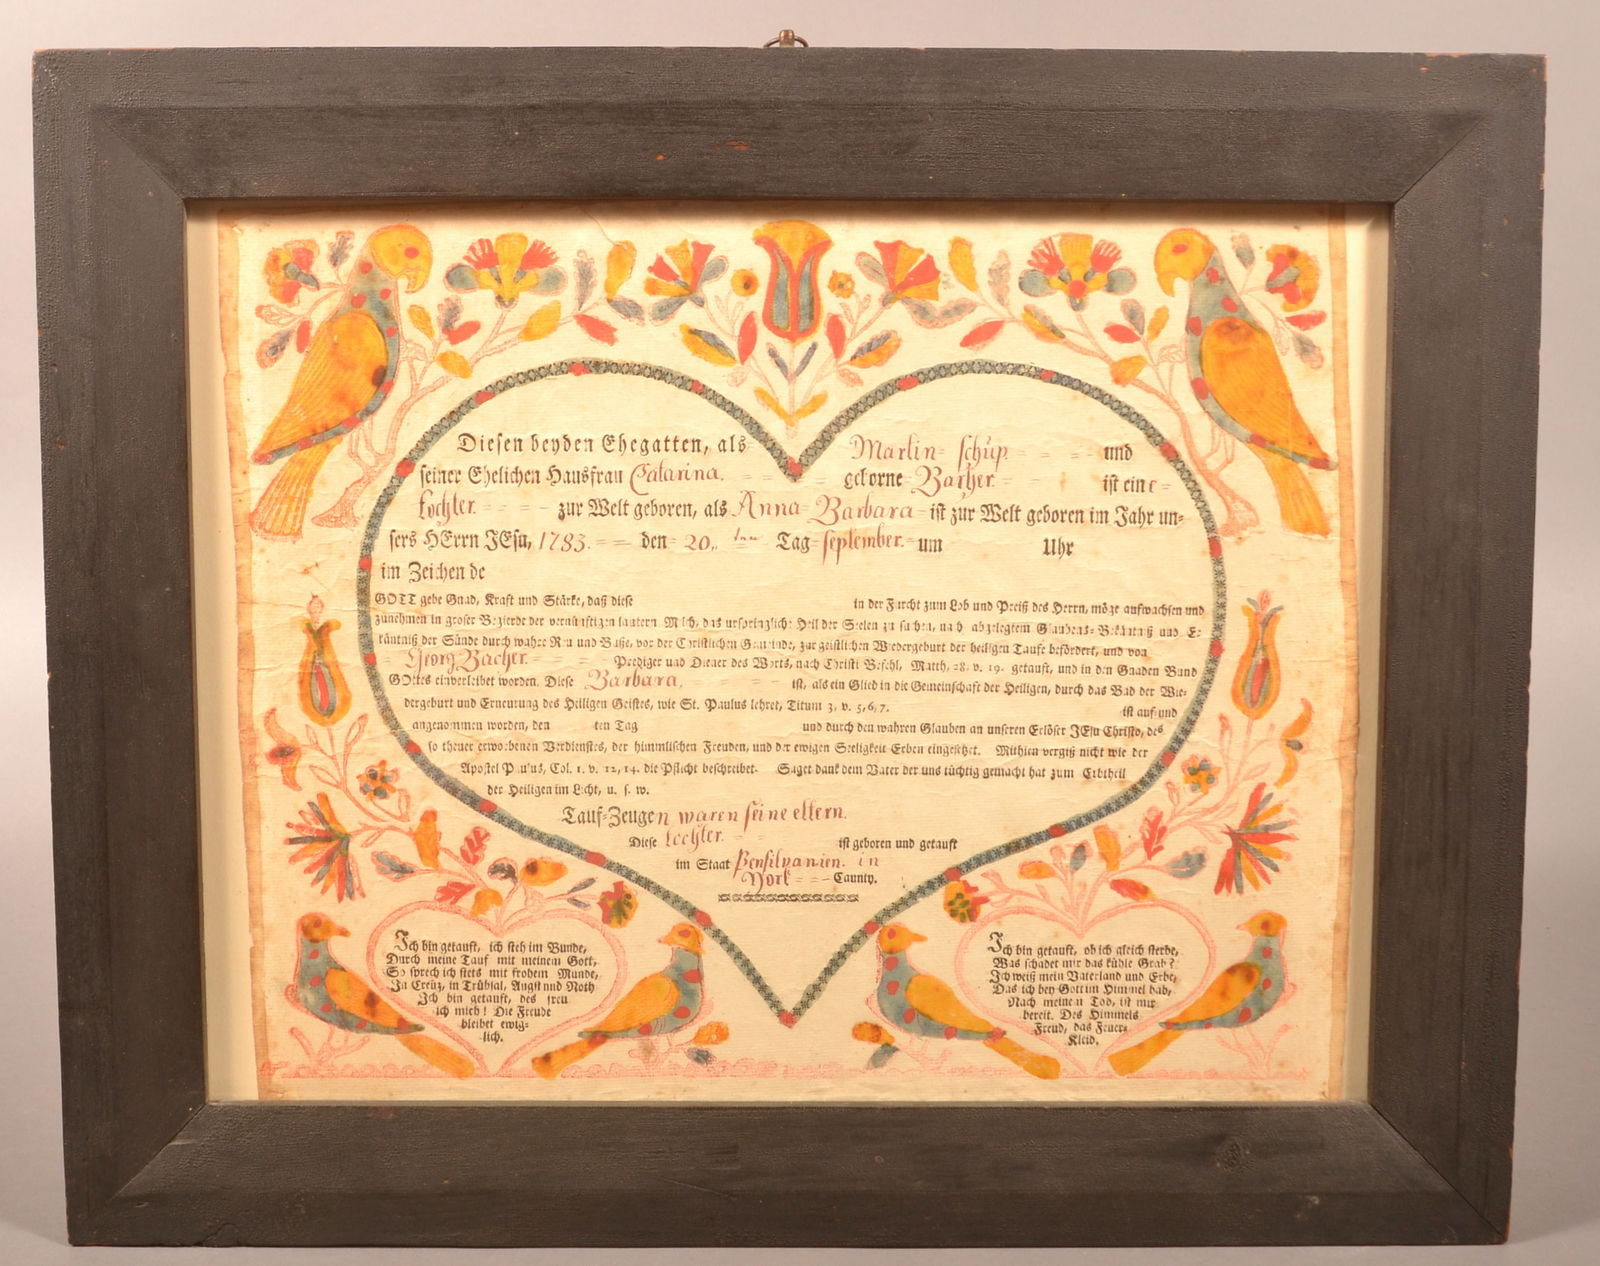 Diesen beyden Ehegatten, als Martin schup und
seiner Ehelichen Hausfrau Catarina. geborne Bacher ist eine
Tochter. zur Welt geboren, als Anna Barbara ist zur Welt geboren im Jahr un-
sers HErrn JEsu, 1783. den 20. ten Tag september. um Uhr
im Zeichen de
GOTT gebe Gnad, Kraft und Stärke, daß diese in der Furcht zum Lob und Preiß des Herrn, möge aufwachsen und
zunehmen in groser Begierde der vernünftigen lautern Milch, das ursprüngliche Heil der Seelen zu suchen, nach abgelegtem Glaubens-Bekäntniß und Er-
käntniß der Sünde durch wahre Reu und Buße, vor der Christlichen Gemeinde, zur geistlichen Wiedergeburt der heiligen Taufe befördert, und von
Georg Bacher. Prediger und Diener des Worts, nach Christi Befehl, Matth. 28. v. 19. getauft, und in den Gnaden Bund
GOttes einverleibet worden. Diese Barbara, ist, als ein Glied in die Gemeinschaft der Heiligen, durch das Bad der Wie-
dergeburt und Erneurung des Heiligen Geistes, wie St. Paulus lehret, Titum 3. v. 5, 6, 7. ist auf und
angenommen worden, den ten Tag und durch den wahren Glauben an unseren Erlöser JEsu Christo, des
so theuer erworbenen Verdienstes, der himmlischen Freuden, und der ewigen Seeligkeit Erben eingesetzet. Mithien vergiß nicht wie der
Apostel Paulus, Col. 1. v. 12, 14. die Pflicht beschreibet. Saget dank dem Vater der uns tüchtig gemacht hat zum Erbtheil
der Heiligen im Licht, u. s. w.
Tauf-Zeugen waren seine eltern.
Diese tochter. ist geboren und getauft
im Staat Pensilvanien. in
York Caunty.
Ich bin getauft, ich steh im Bunde,
Durch meine Tauf mit meinem Gott,
So sprech ich stets mit frohem Munde,
In Creuz, in Trübsal, Angst und Noth
Ich bin getauft, des freu
ich mich! Die Freude
bleibet ewig-
lich.
Ich bin getauft, ob ich gleich sterbe,
Was schadet mir das kühle Grab?
Ich weiß mein Vaterland und Erbe,
Das ich bey Gott im Himmel hab,
Nach meinem Tod, ist mir
bereit. Des Himmels
Freud, das Feuer-
Kleid.